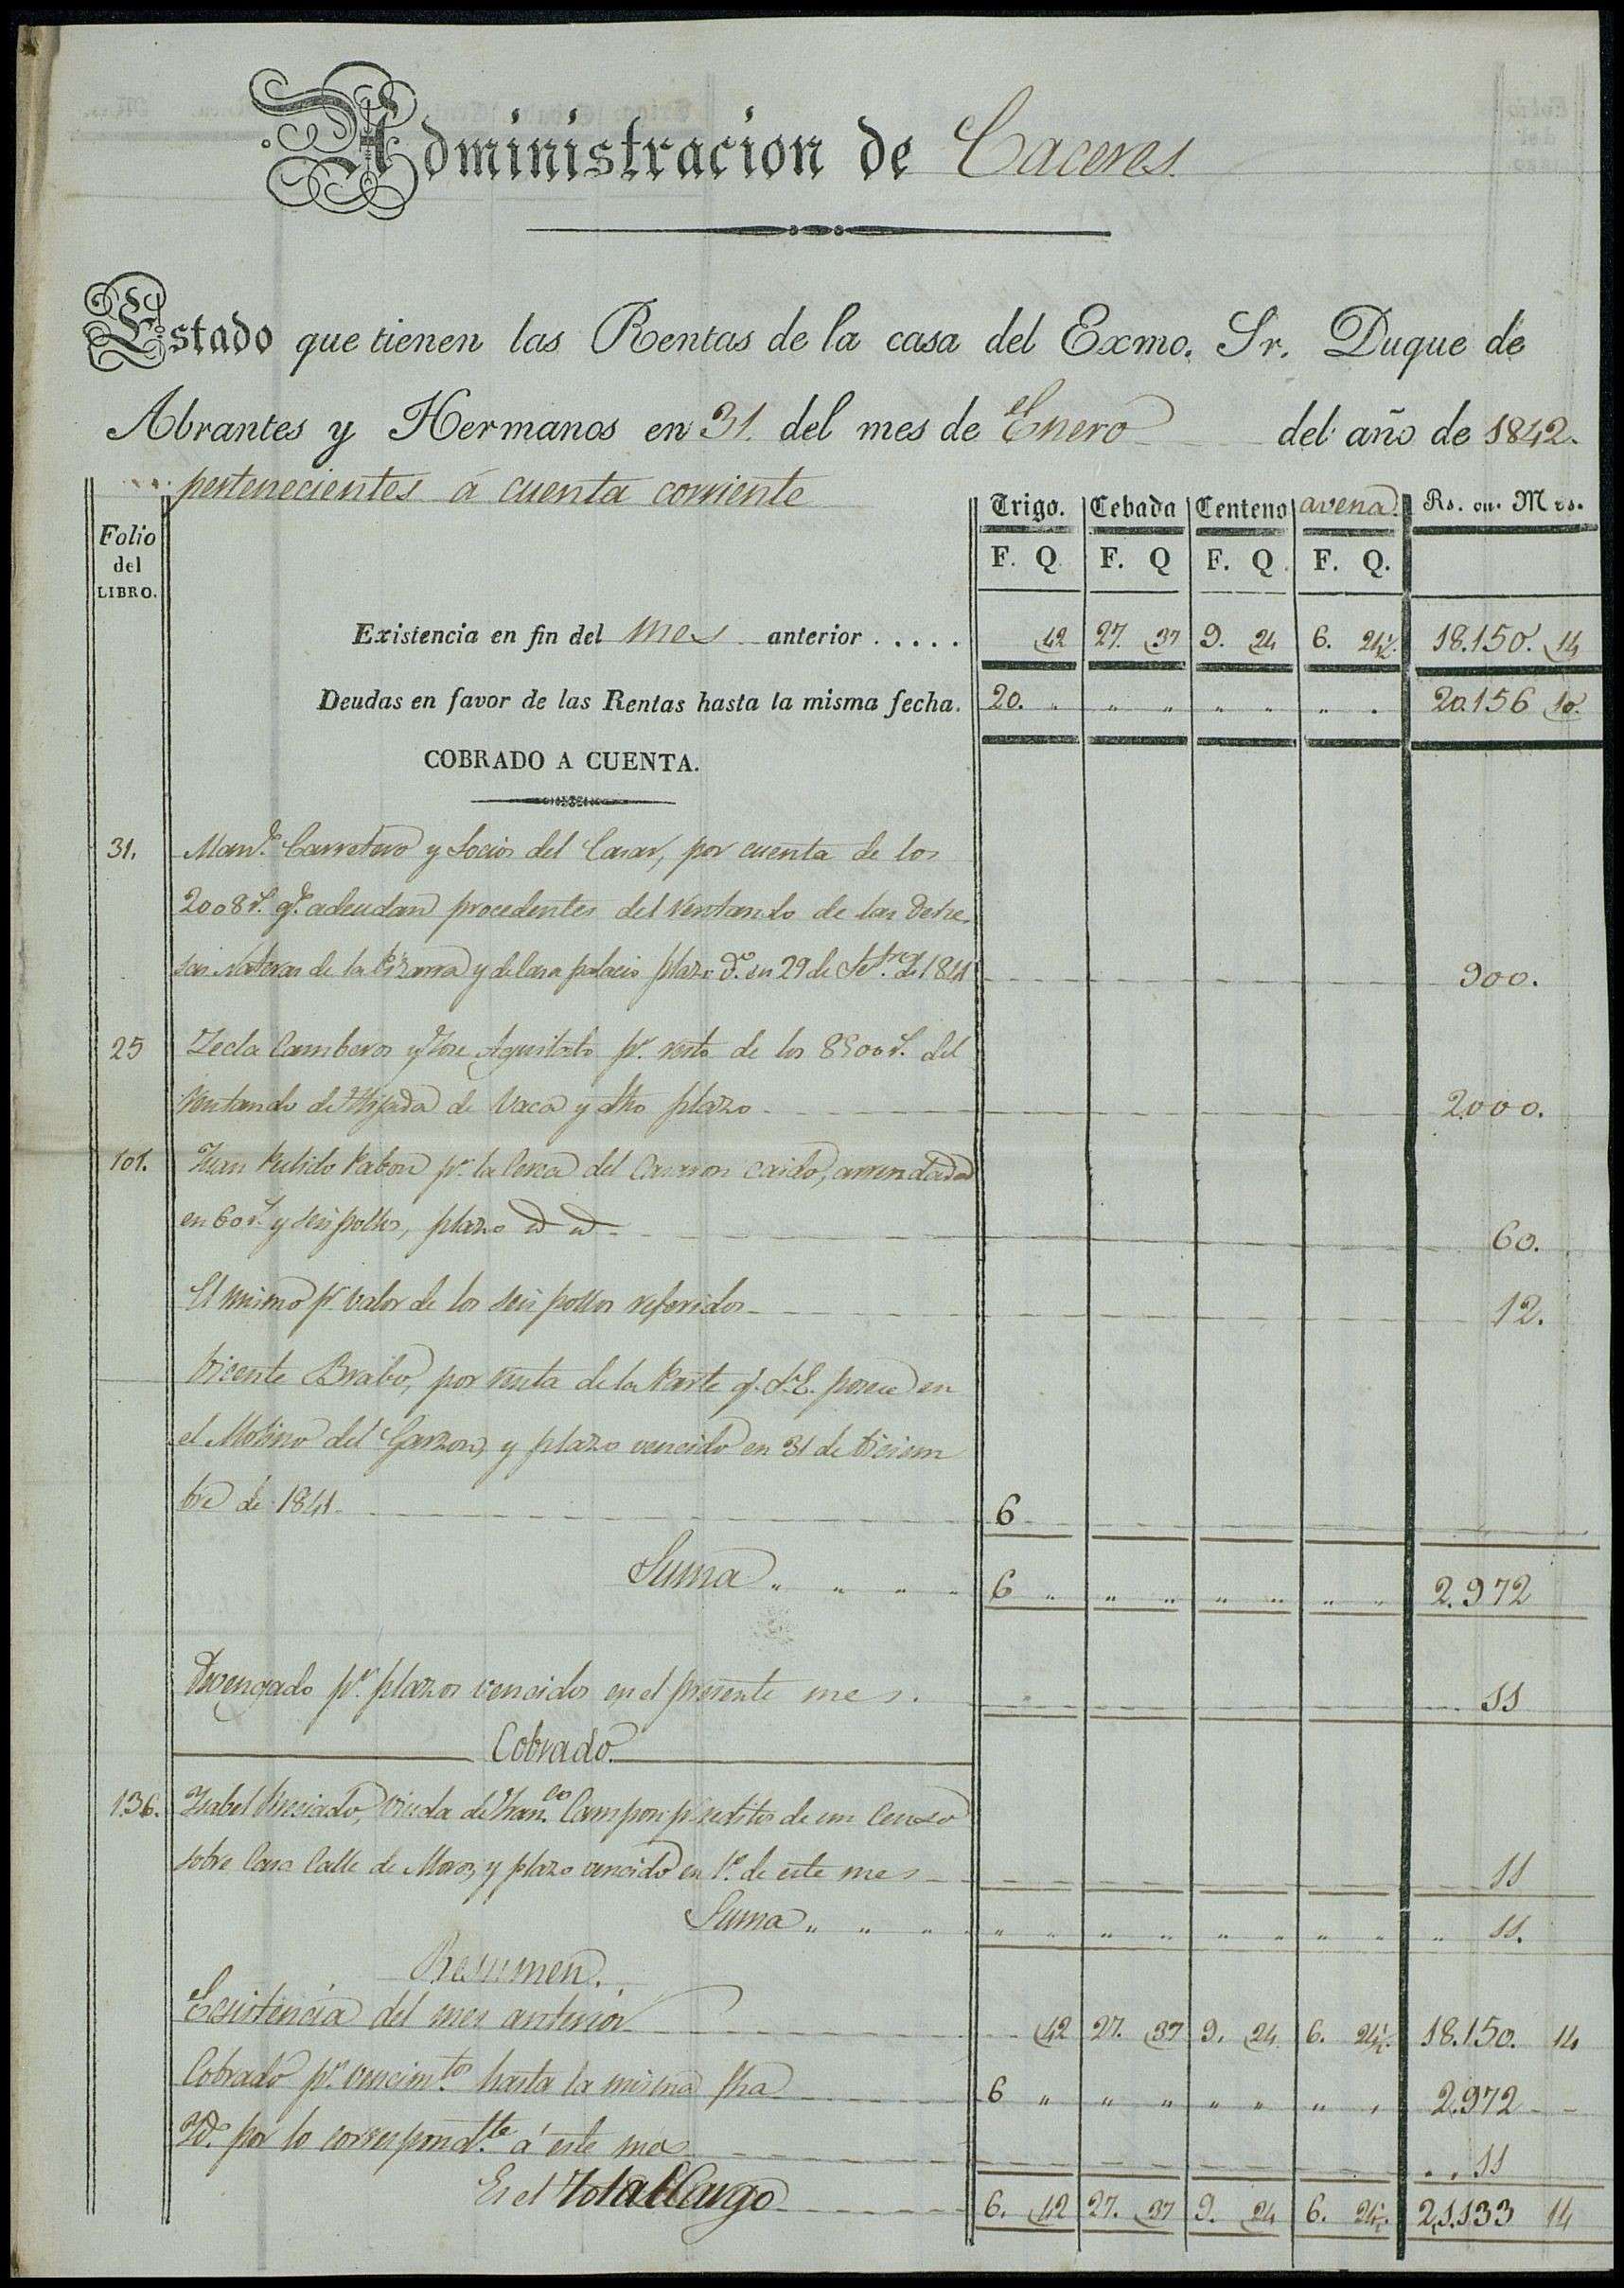 Administracion de Caceres.
Estado que tienen las Rentas de la casa del Exmo. Sr. Duque de
Abrantes y Hermanos en 31. del mes de Enero del año de 1842.
pertenecientes á cuenta corriente
Folio del LIBRO.
Trigo. Cebada Centeno avena. Rs. on. Mrs.
F. Q F. Q F. Q. F. Q.
Existencia en fin del mes anterior . . . . . 42 27. 37 9. 24 6. 24½. 18.150. 14
Deudas en favor de las Rentas hasta la misma fecha. 20. „ „ „ „ „ „ . 20.156 10.
COBRADO A CUENTA.
31. Man.l Carretero y Socios del Casar, por cuenta de los
2008 r.s q.e adeudan procedentes del rentando de las Dehe-
sas de la Pizarra y de Casa palacio plazo d.o en 29 de Set.re de 1841 900.
25 Tecla Camberos y Jose p.r resto de los 8500 r.s del
rentando de Hijada de Vaca y dho plazo 2000.
101. Juan Pulido Pabon p.r la Cerca del caido, arrendada
en 60 r.s y seis pollos, plazo id id 60.
El mismo p.r valor de los seis pollos referidos 12.
Vicente Brabo, por renta de la Parte q.e S.E. posee en
el Molino del Garzon, y plazo vencido en 31 de Diciem
bre de 1841 6
Suma „ „ „ „ 6 „ „ „ „ „ „ „ 2.972
Devengado p.r plazos vencidos en el presente mes. 11
Cobrado.
136. Isabel Viuda de Fran.co Campon p.r reditos de un Censo
sobre Casa Calle de Moros, y plazo vencido en 1.o de este mes 11
Suma „ „ „ „ „ „ „ „ „ „ „ „ 11.
Resumen.
Ecsistencia del mes anterior 42 27. 37 9. 24 6. 24½. 18.150. 14
Cobrado p.r vencim.tos hasta la misma fha 6 „ „ „ „ „ „ „ 2.972
Yd. por lo correspond.te á este mes . . 11
Es el total Cargo 6. 42 27. 37 9. 24 6. 24½. 21.133 14